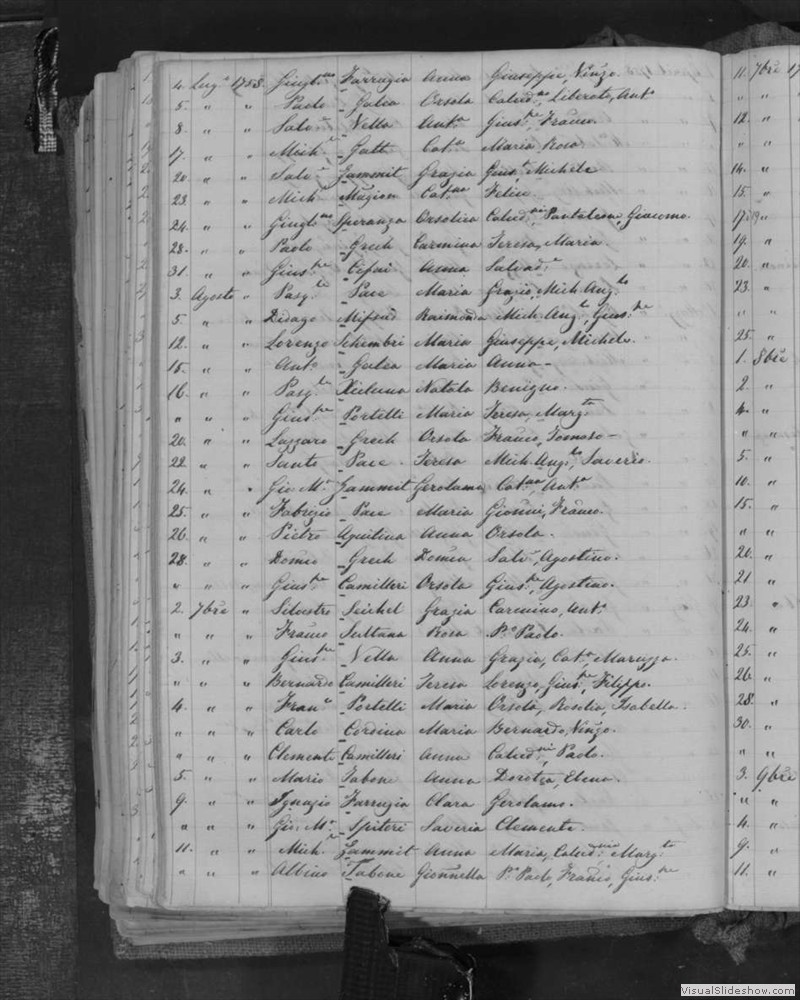 4. Lug.o 1758. Giugl.mo Farrugia Anna Giuseppe, Ninzo.
5. " " Paolo Galea Orsola Calced.no, Liberata, Ant.a
8. " " Salv.e Vella Ant.a Gius.pe, Franco.
17. " " Mich.e Gatt Cat.a Maria Rosa
20. " " Salv.e Zammit Grazia Gius.e Michele
23. " " Mich.e Cat.na Felice.
24. " " Giugl.mo Speranza Orsolica Calced.nio Pantaleone, Giacomo.
28. " " Paolo Grech Carmina Teresa, Maria.
31. " " Gius.pe Cefai Anna Salvad.e
3. Agosto " Pasq.le Pace Maria Grazio, Mich. Ang.lo
5. " " Didago Mifsud Raimonda Mich. Ang.lo, Gius.pe
12. " " Lorenzo Schembri Maria Giuseppe, Michele.
15. " " Ant.o Galea Maria Anna -
16. " " Pasq.le Xicluna Natala Benigno.
" " " Gius.pe Portelli Maria Teresa, Marg.ta
20. " " Lazzaro Grech Orsola Franco, Tomaso -
22. " " Santo Pace Teresa Mich. Ang.lo, Saverio.
24. " " Gio. M.a Zammit Gerolama Cat.na, Ant.a
25. " " Fabrizio Pace Maria Gionni, Franco.
26. " " Pietro Aquilina Anna Orsola.
28. " " Domco Grech Domca Salv.e, Agostino.
" " " Gius.pe Camilleri Orsola Gius.pe, Agostino.
2. 7bre " Silvestro Seichel Grazia Carmino, Ant.o
" " " Franco Sultana Rosa P.o Paolo.
3. " " Gius.pe Vella Anna Grazia, Cat.a Maruzza.
" " " Bernardo Camilleri Teresa Lorenzo, Gius.pe, Filippo.
4. " " Fran.o Portelli Maria Orsola, Rosolia, Isabella.
" " " Carlo Cordina Maria Bernardo, Ninzo.
" " " Clemente Camilleri Anna Calced.nio, Paolo.
5. " " Mario Tabone Anna Dorotea, Elena.
9. " " Ignazio Farrugia Clara Gerolamo.
" " " Gio. M.a Spiteri Saveria Clemente.
11. " " Mich.e Zammit Anna Maria, Calced.nio Marg.ta
" " " Albino Tabone Gionnella P.o Paolo, Franco, Gius.pe
11. 7bre 17
" "
12. "
" "
14. "
15. "
17. "
19. "
20. "
23. "
" "
25. "
1. 8bre
2. "
4. "
" "
5. "
10. "
15. "
" "
20. "
21 "
23. "
24. "
25. "
26. "
28. "
30. "
" "
3. 9bre
" "
4. "
9. "
11. "
VisualSlideshow.com